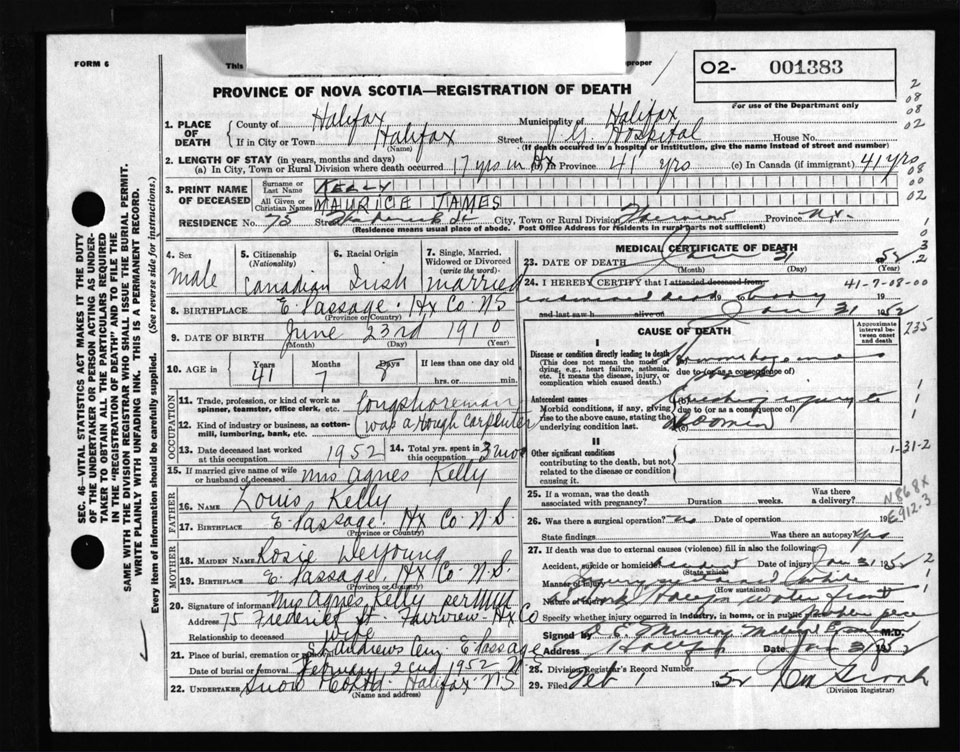 FORM 6
This
proper
O2- 001383
For use of the Department only
PROVINCE OF NOVA SCOTIA—REGISTRATION OF DEATH
1. PLACE OF DEATH
County of Halifax Municipality of Halifax
If in City or Town Halifax (Name) Street V.G. Hospital House No.
(If death occurred in a hospital or institution, give the name instead of street and number)
2. LENGTH OF STAY (in years, months and days)
(a) In City, Town or Rural Division where death occurred 17 yrs in Hx Province 41 yrs (c) In Canada (if immigrant) 41 yrs
3. PRINT NAME OF DECEASED
Surname or Last Name KELLY
All Given or Christian Names MAURICE JAMES
RESIDENCE No. 75 Street Frederick St City, Town or Rural Division Fairview Province N.S.
(Residence means usual place of abode. Post Office Address for residents in rural parts not sufficient)
4. Sex male
5. Citizenship (Nationality) Canadian
6. Racial Origin Irish
7. Single, Married, Widowed or Divorced (write the word) married
8. BIRTHPLACE E. Passage. Hx Co NS
(Province or Country)
9. DATE OF BIRTH June 23rd 1910
(Month) (Day) (Year)
10. AGE in Years 41 Months 7 Days 8 If less than one day old hrs. or min.
OCCUPATION
11. Trade, profession, or kind of work as spinner, teamster, office clerk, etc. Longshoreman
12. Kind of industry or business, as cotton-mill, lumbering, bank, etc. (was a Rough carpenter
13. Date deceased last worked at this occupation 1952
14. Total yrs. spent in this occupation 3 mos
15. If married give name of wife or husband of deceased Mrs Agnes Kelly
FATHER
16. NAME Louis Kelly
17. BIRTHPLACE E. Passage. Hx Co. N.S.
(Province or Country)
MOTHER
18. MAIDEN NAME Rosie DeYoung
19. BIRTHPLACE E. Passage Hx Co. N.S.
(Province or Country)
20. Signature of informant Mrs Agnes Kelly per
Address 75 Frederick St. Fairview Hx Co
Relationship to deceased wife
21. Place of burial, cremation or St Andrews Cem. E Passage
Date of burial or removal February 2nd 1952
22. UNDERTAKER Snow Co Ltd. Halifax NS
(Name and address)
MEDICAL CERTIFICATE OF DEATH
23. DATE OF DEATH Jan 31 1952
(Month) (Day) (Year)
24. I HEREBY CERTIFY that I attended deceased from 41-7-08-00
examined dead body 19
and last saw h alive on Jan 31 1952
CAUSE OF DEATH
Approximate interval between onset and death
I
Disease or condition directly leading to death
(This does not mean the mode of dying, e.g., heart failure, asthenia, etc. It means the disease, injury, or complication which caused death.)
Haemorrhage and
due to (or as a consequence of)
Antecedent causes
Morbid conditions, if any, giving rise to the above cause, stating the underlying condition last.
(b) Crushing injury to
due to (or as a consequence of)
(c) abdomen
II
Other significant conditions
contributing to the death, but not related to the disease or condition causing it.
25. If a woman, was the death associated with pregnancy? Duration weeks. Was there a delivery?
26. Was there a surgical operation? no Date of operation 19
State findings Was there an autopsy? yes
27. If death was due to external causes (violence) fill in also the following:
Accident, suicide or homicide Accident Date of injury Jan 31 1952
(State which)
Manner of injury Injury sustained while
(How sustained)
Nature of injury at work Halifax water front
Specify whether injury occurred in industry, in home, or in public place
Signed by M.D.
Address Halifax Date Jan 31 1952
28. Division Registrar's Record Number
29. Filed Feb 1 1952
(Division Registrar)
SEC. 46—VITAL STATISTICS ACT MAKES IT THE DUTY OF THE UNDERTAKER OR PERSON ACTING AS UNDERTAKER TO OBTAIN ALL THE PARTICULARS REQUIRED IN THE "REGISTRATION OF DEATH" AND TO FILE THE SAME WITH THE DIVISION REGISTRAR WHO SHALL ISSUE THE BURIAL PERMIT.
WRITE PLAINLY WITH UNFADING INK. THIS IS A PERMANENT RECORD.
Every item of information should be carefully supplied. (See reverse side for instructions.)
2
08
08
02
08
00
02
1
0
3
.2
735
1
1
1
1-31-2
N868X
E912.3
2
1